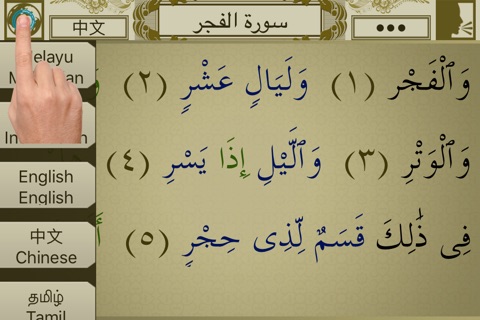 中文
سورة الفجر
•••
elayu
English
English
中文
Chinese
தமிழ்
Tamil
وَٱلْفَجْرِ (١) وَلَيَالٍ عَشْرٍ (٢)
وَٱلْوَتْرِ (٣) وَٱلَّيْلِ إِذَا يَسْرِ (٤)
فِى ذَٰلِكَ قَسَمٌ لِّذِى حِجْرٍ (٥)